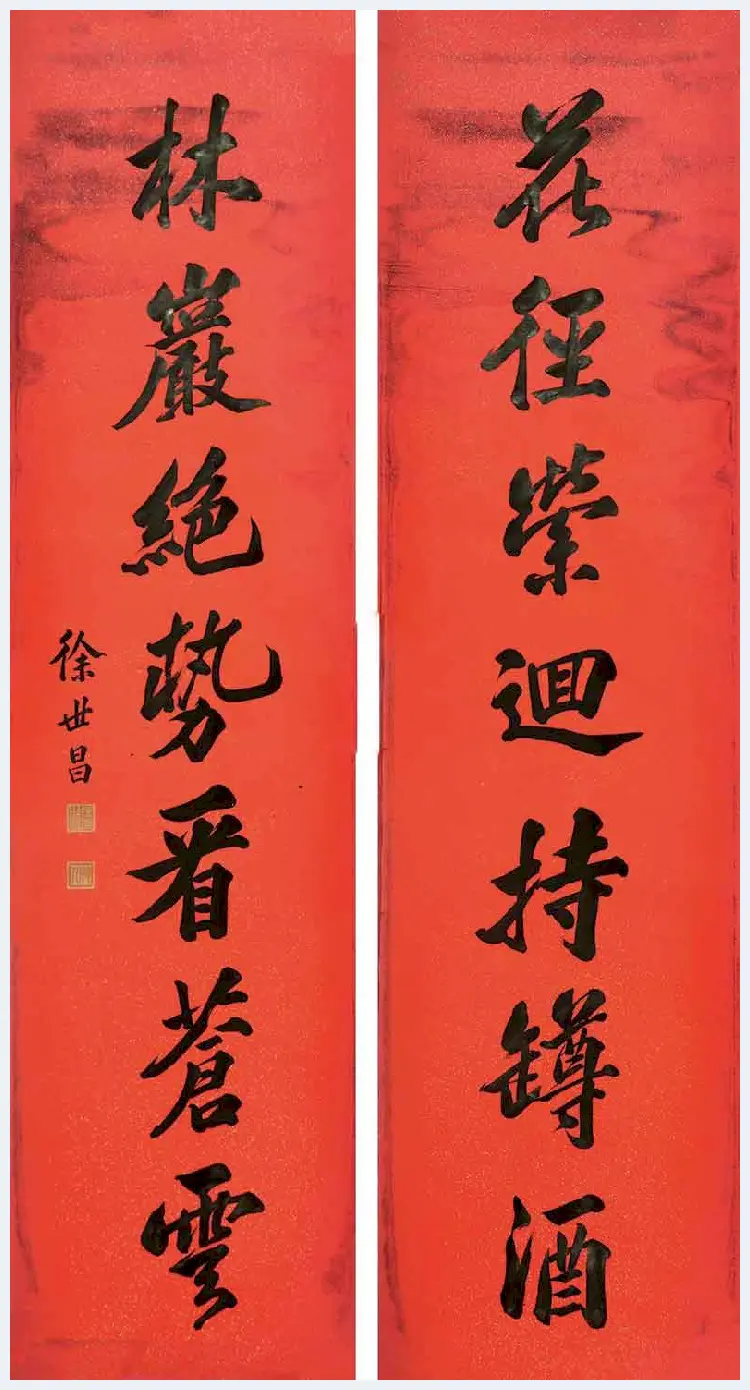 花徑縈迴持罇酒
林巖絕勢看蒼雲
徐世昌